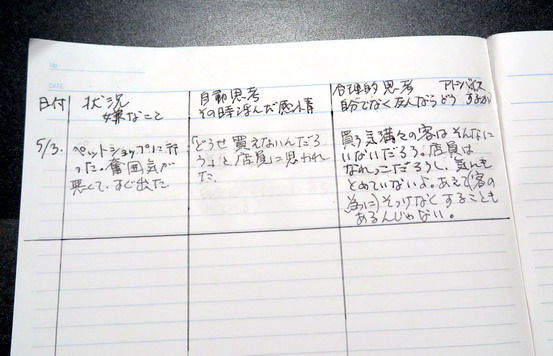 DATE
日付
状況
嫌なこと
自動思考
その時浮んだ感情
合理的思考 アドバイス
自分でなく友人ならどうするか
5/3.
ペットショップに行
った。雰囲気が
悪くて、すぐ出た
「どうせ買えないんだろ
う」と店員に思われ
た.
買う気満々の客はそんなに
いないだろう。店員は
なれっこだろうし、気にも
とめていないよ。あえて(客の
為に)そっけなくすることも
あるんじゃない。